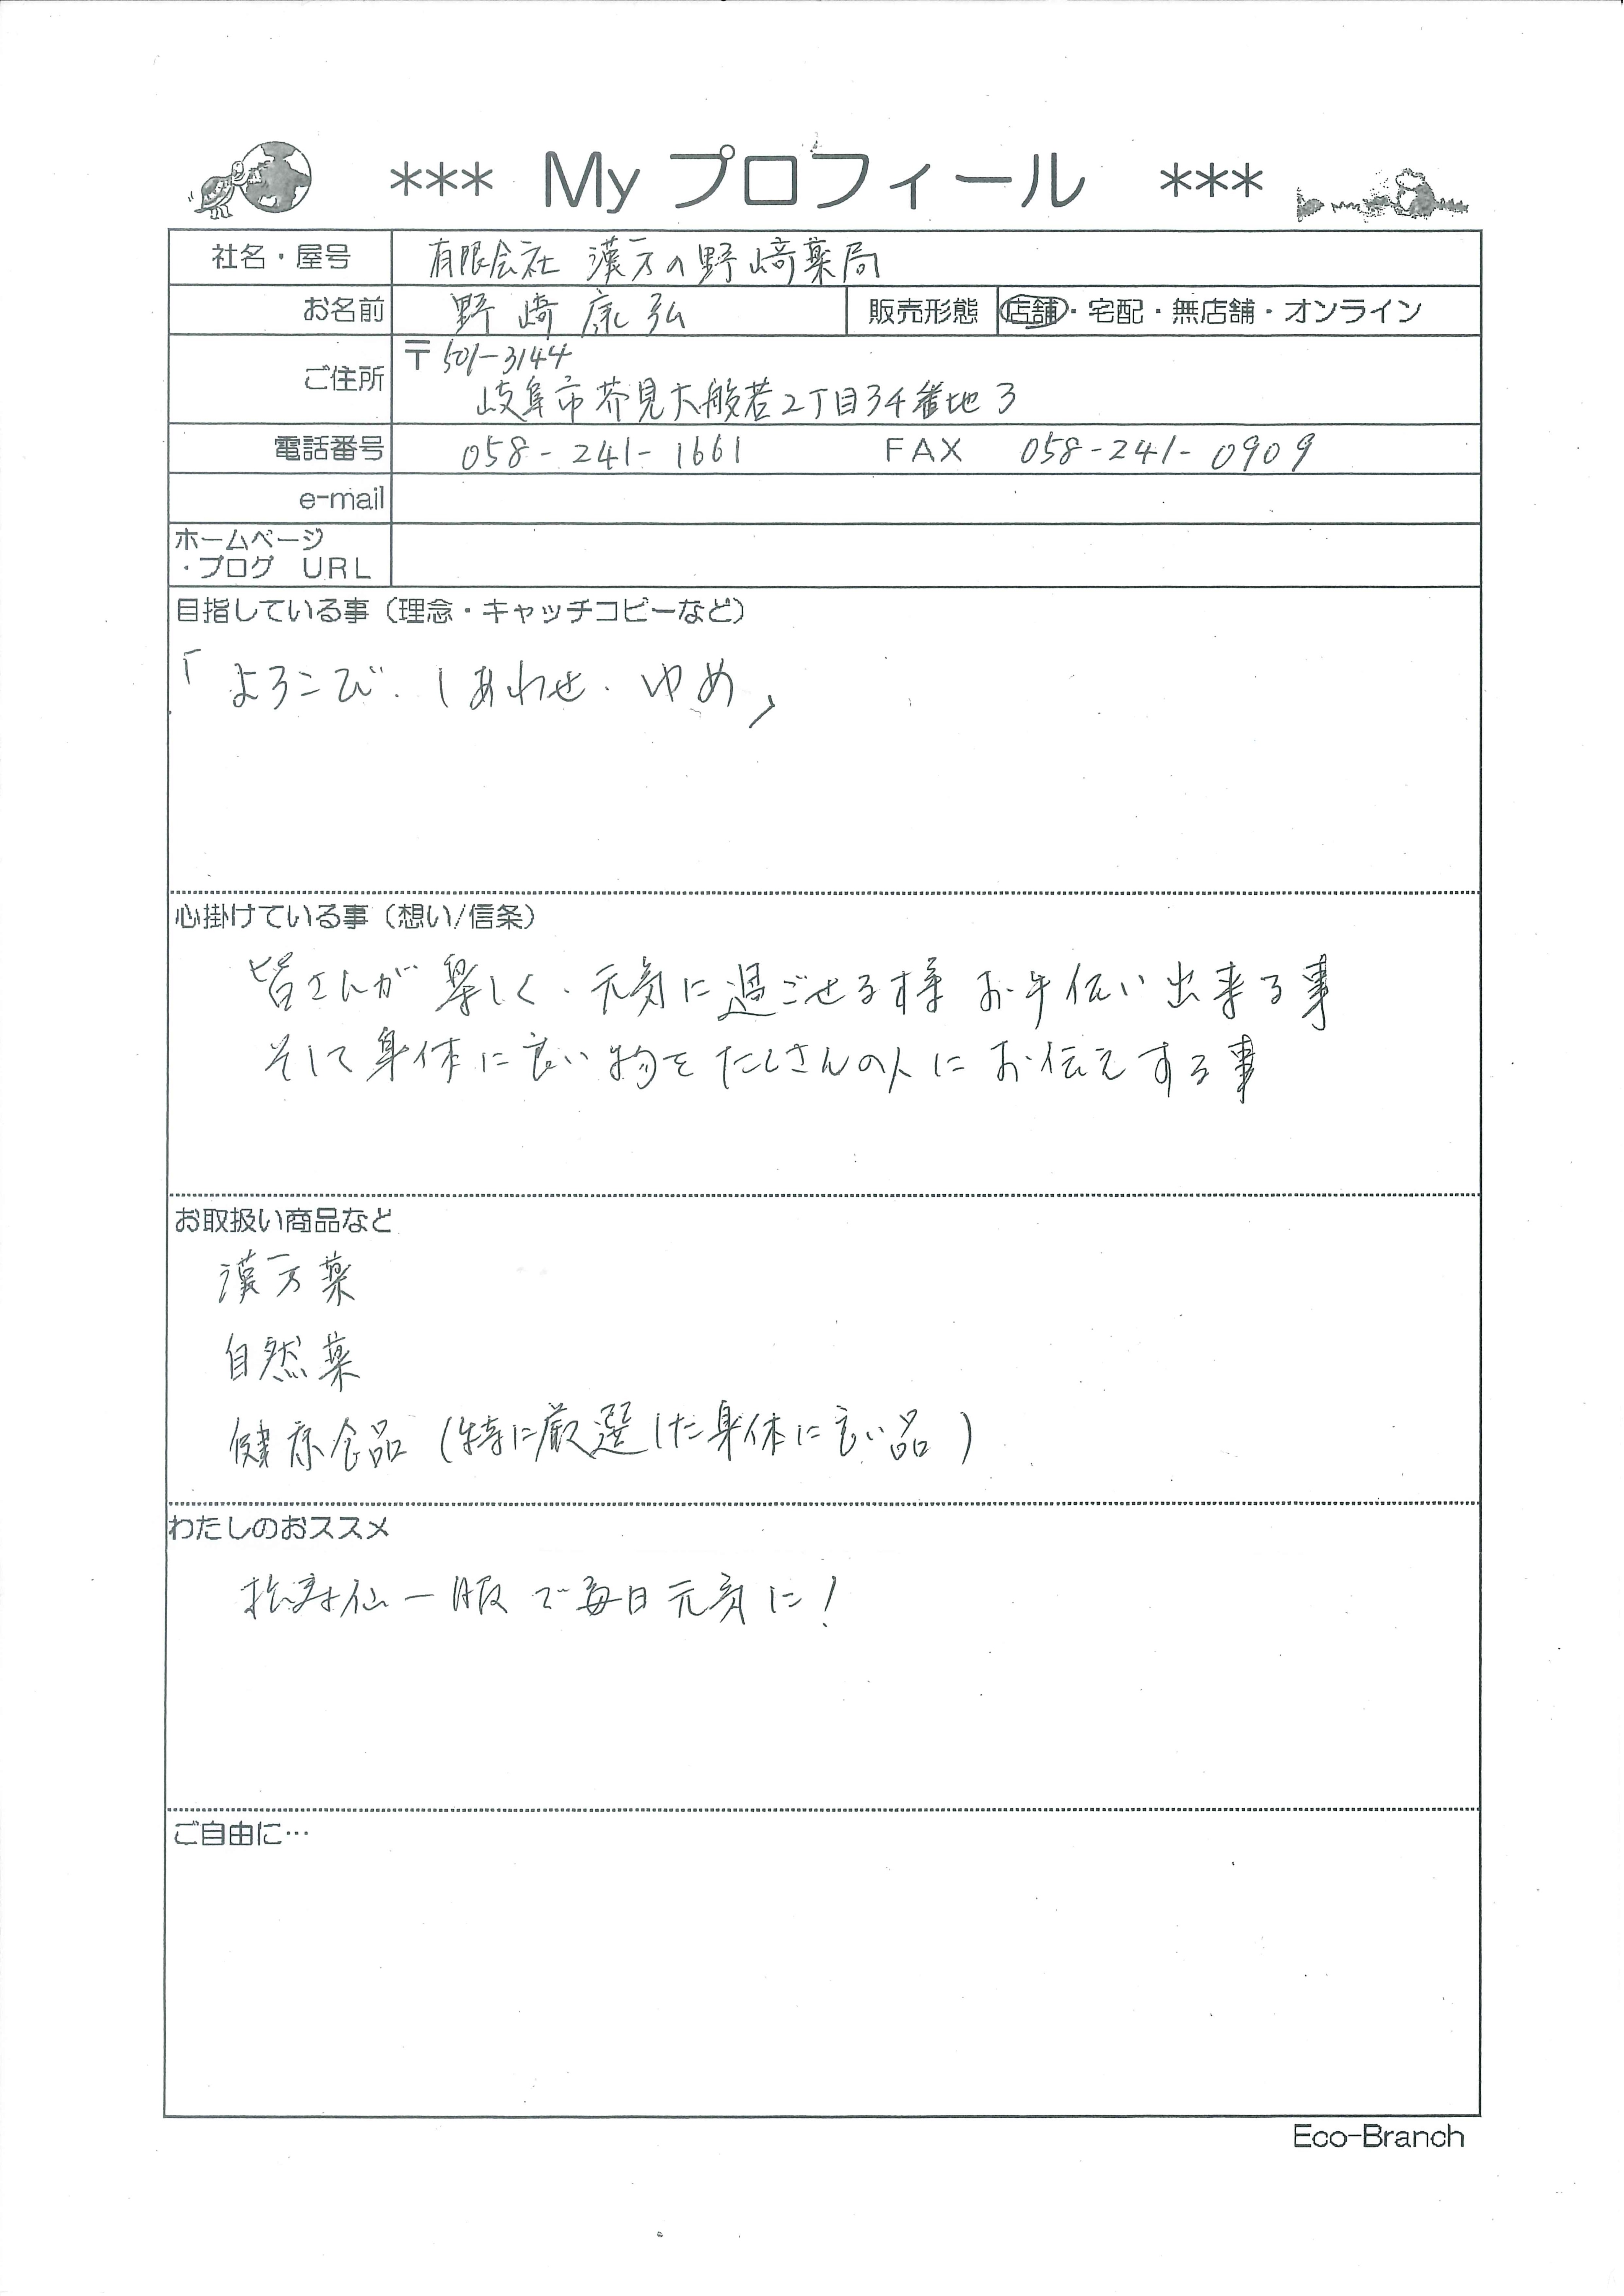 *** My プロフィール ***
社名・屋号 有限会社 漢方の野﨑薬局
お名前 野﨑康弘 販売形態 店舗・宅配・無店舗・オンライン
ご住所 〒501-3144
岐阜市芥見大般若2丁目34番地3
電話番号 058-241-1661 FAX 058-241-0909
e-mail
ホームページ
・ブログ URL
目指している事（理念・キャッチコピーなど）
「よろこび・しあわせ・ゆめ」
心掛けている事（想い/信条）
皆さんが楽しく、元気に過ごせる様お手伝い出来る事
そして身体に良い物をたくさんの人にお伝えする事
お取扱い商品など
漢方薬
自然薬
健康食品（特に厳選した身体に良い品）
わたしのおススメ
松寿仙一服で毎日元気に！
ご自由に…
Eco-Branch